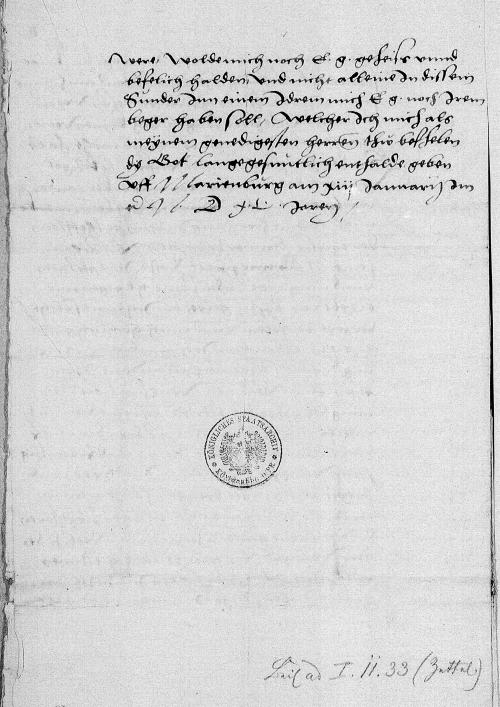 were, wolde mich noch E. g. geheiss vnnd
befelich halden, vnd nicht alleine In dissem
Sunder Inn einem Idrem mich E g. noch Irem
beger haben soll, Welcher Ich mich als
meynem genedigesten herren thw beffelen
dy Got lange gesuntlich enthalde geben
vff Marienburg am xiij January Im
Jaren
KÖNIGLICHES STAATSARCHIV
KÖNIGSBERG
I. 11. 33 (Zettel)